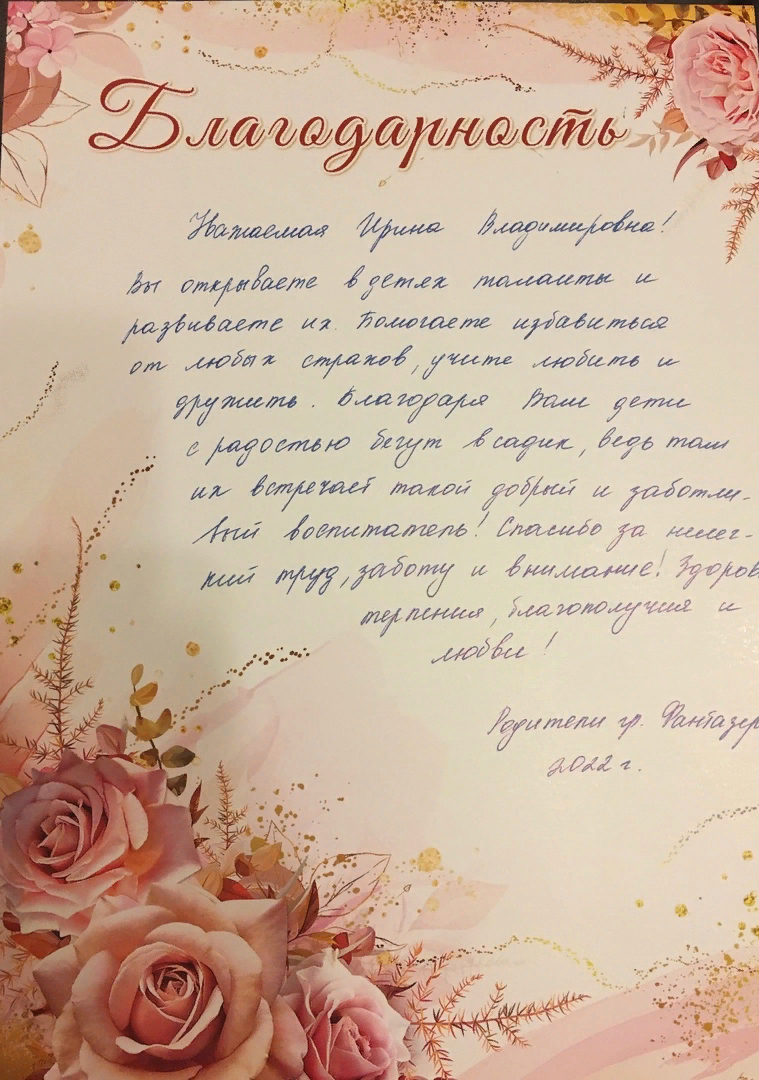 Благодарность
Уважаемая Ирина Владимировна!
Вы открываете в детях таланты и
развиваете их. Помогаете избавиться
от любых страхов, учите любить и
дружить. Благодаря Вам дети
с радостью бегут в садик, ведь там
их встречает такой добрый и заботли-
вый воспитатель! Спасибо за нелег-
кий труд, заботу и внимание! Здоров
терпения, благополучия и
любви!
Родители гр. Фантазер
2022 г.